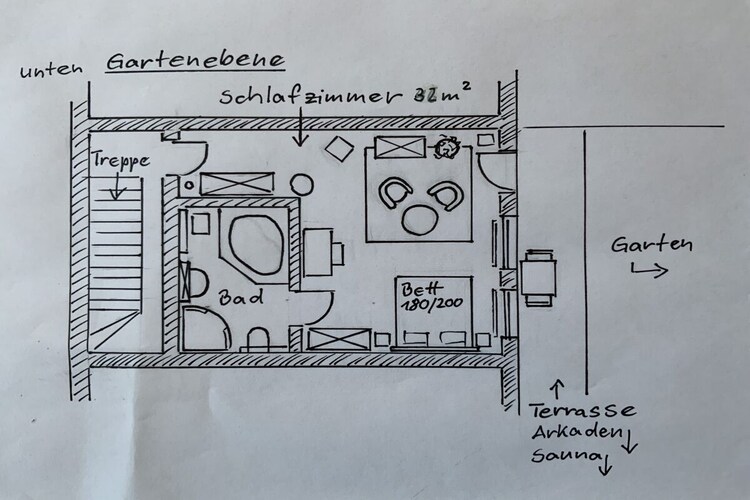 unten Gartenebene
Schlafzimmer m²
Treppe
Garten
Bett
180/200
Bad
Terrasse
Arkaden
Sauna